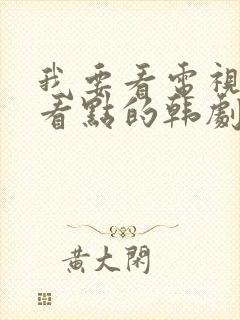 我要看電視
看點的韩劇
黄大閑